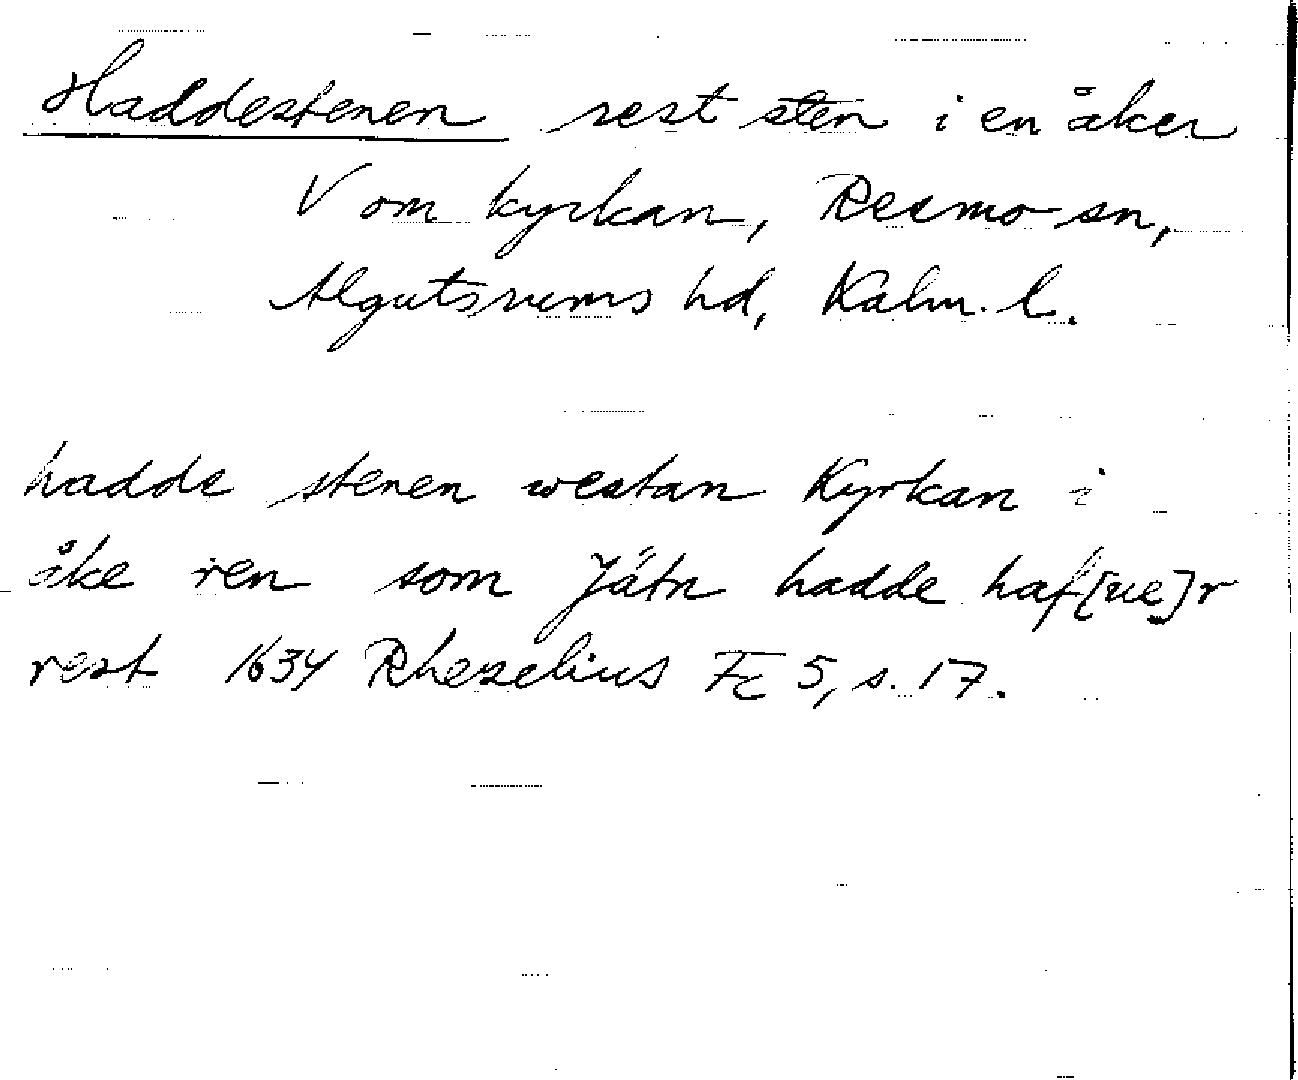 Haddestenen rest sten i en åker
V om kyrkan, Resmo sn,
Algutsrums hd, Kalm. l.
hadde stenen westan Kyrkan i
åke ren som Jätn hadde haf[ue]r
rest 1634 Rhezelius Fc 5, s. 17.